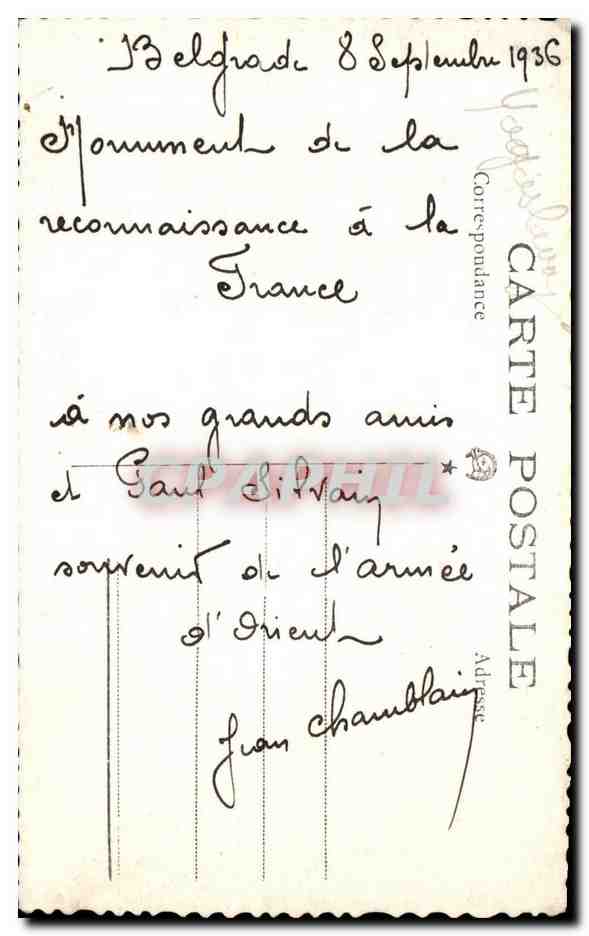 Belgrade 8 Septembre 1936
Monument de la
reconnaissance à la
France
à nos grands amis
et Paul Silvain
souvenir de l'armée
d'Orient
Jean Chamblain
CARTE POSTALE
Correspondance
Adresse
CPAPHIL